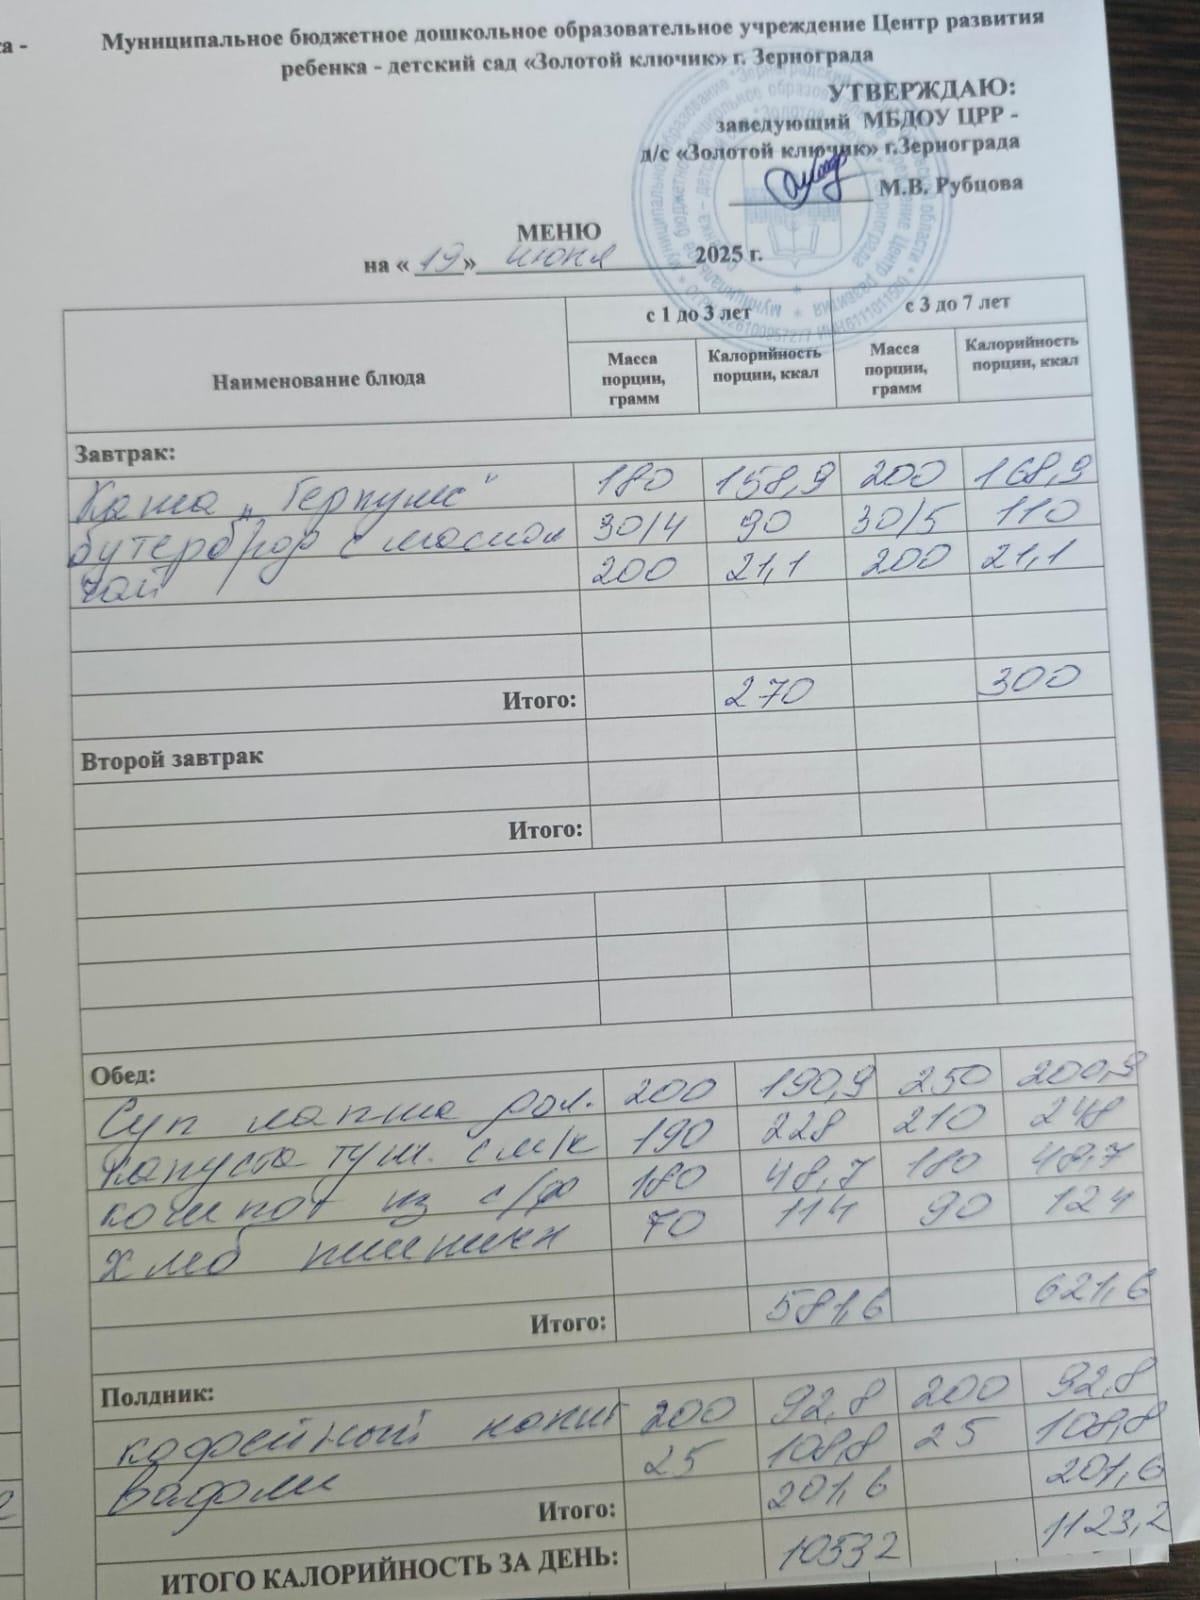 Муниципальное бюджетное дошкольное образовательное учреждение Центр развития
ребенка - детский сад «Золотой ключик» г. Зернограда
УТВЕРЖДАЮ:
заведующий МБДОУ ЦРР -
д/с «Золотой ключик» г.Зернограда
М.В. Рубцова
МЕНЮ
на « 19 » июня 2025 г.
Наименование блюда
с 1 до 3 лет
с 3 до 7 лет
Масса порции, грамм
Калорийность порции, ккал
Масса порции, грамм
Калорийность порции, ккал
Завтрак:
Каша „Геркулес" 180 158,9 200 168,9
бутерброд с маслом 30/4 90 30/5 110
чай 200 21,1 200 21,1
Итого: 270 300
Второй завтрак
Итого:
Обед:
Суп лапша дом. 200 190,9 250 200,9
капуста туш. с м/к 190 228 210 248
компот из с/ф 180 48,7 180 48,7
хлеб пшеничн 70 114 90 124
Итого: 581,6 621,6
Полдник:
кофейный напит 200 92,8 200 92,8
вафли 25 108,8 25 108,8
Итого: 201,6 201,6
ИТОГО КАЛОРИЙНОСТЬ ЗА ДЕНЬ: 1053 2 1123,2